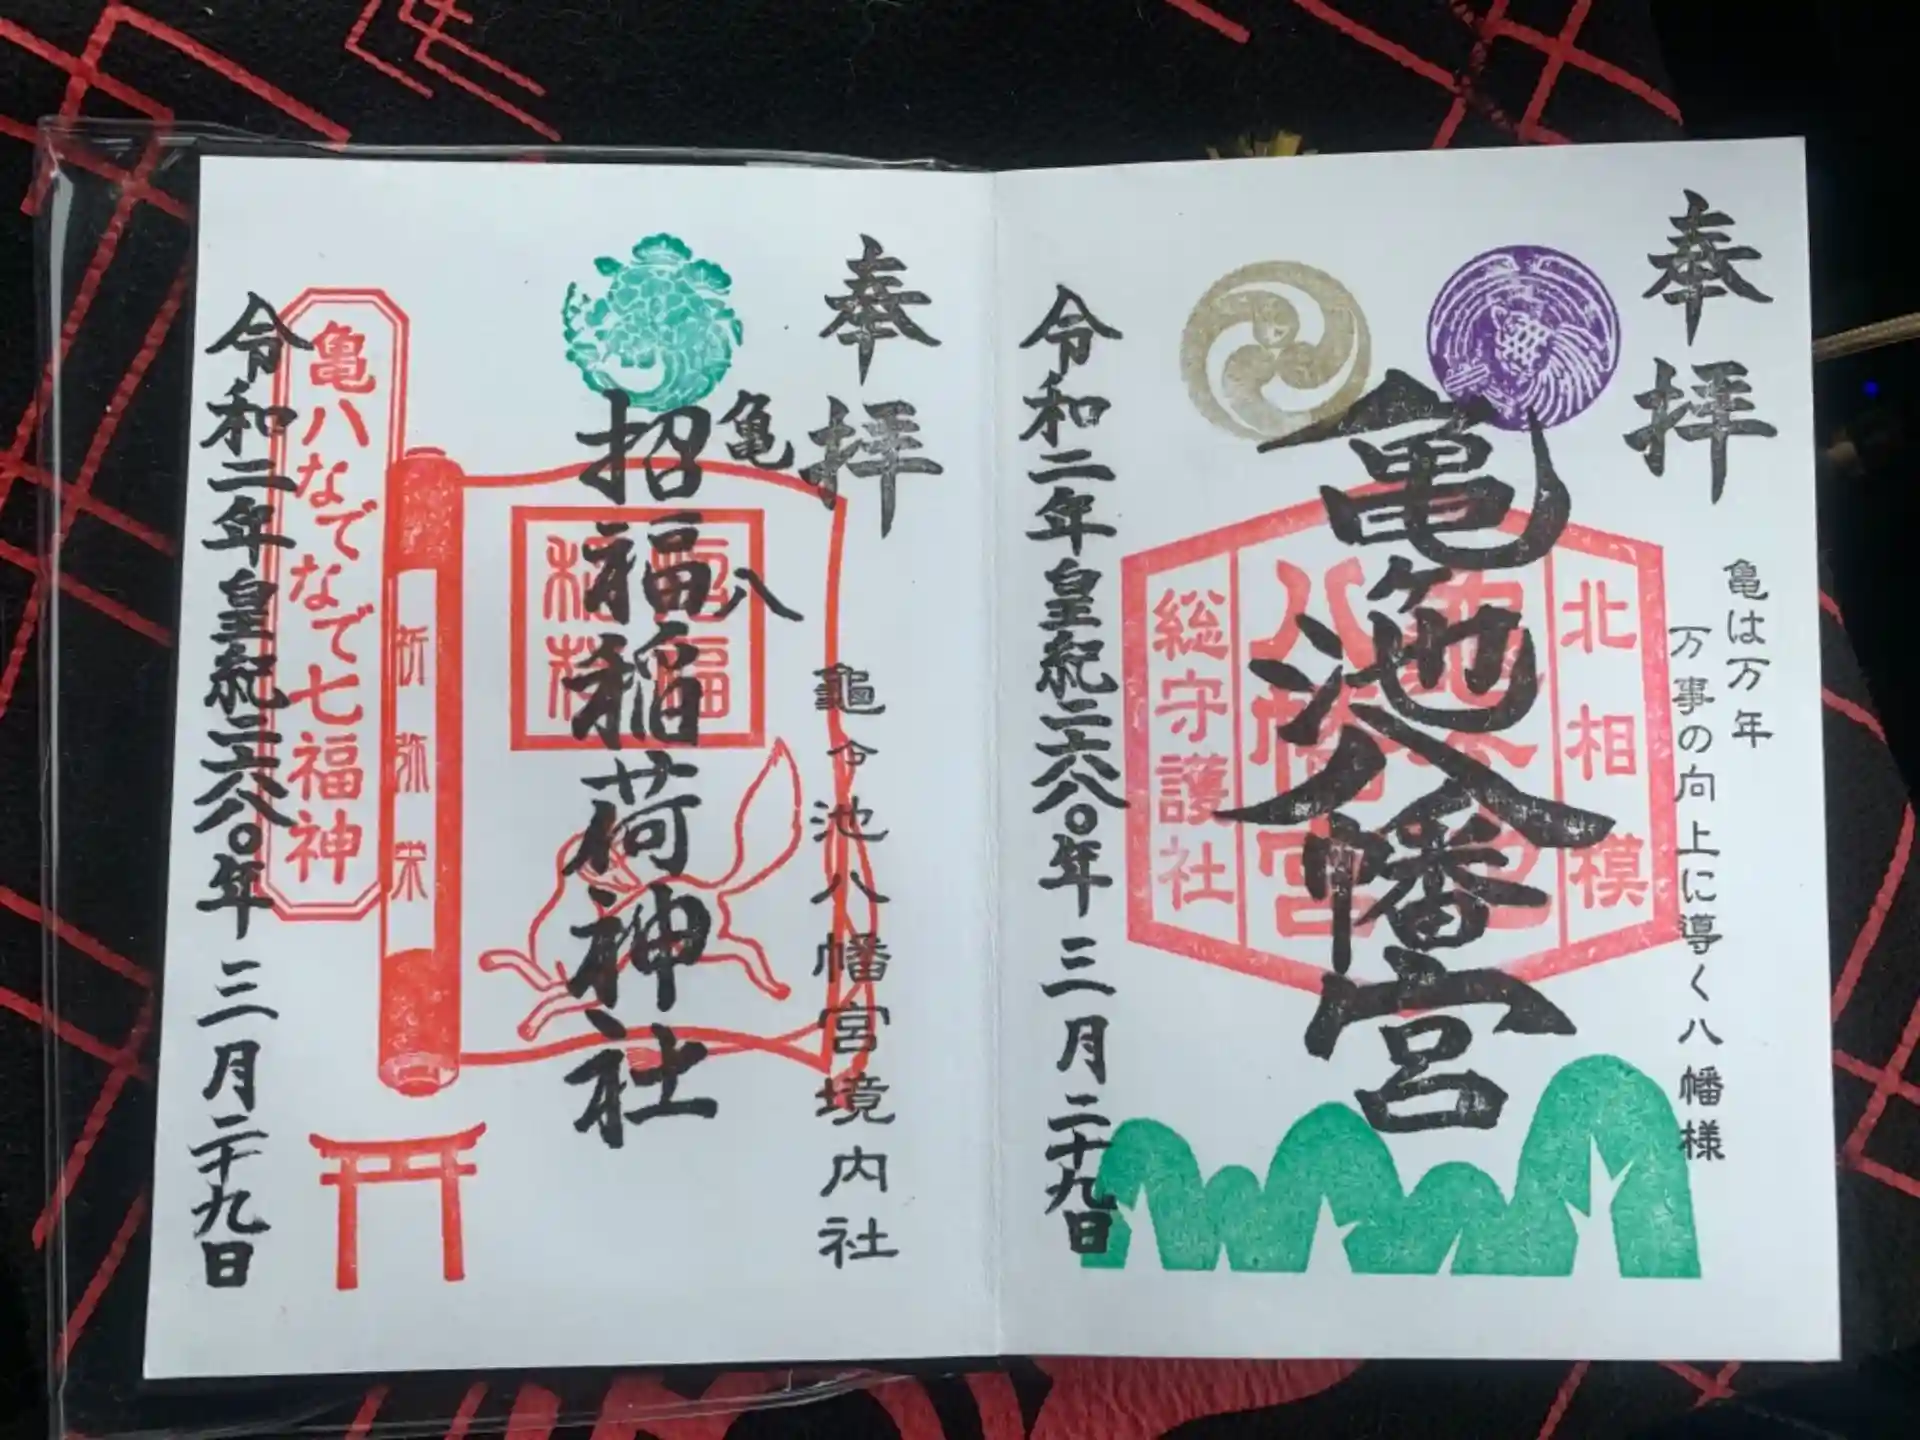 奉拝
亀は万年
万事の向上に導く八幡様
亀ヶ池八幡宮
北相模
総守護社
令和二年皇紀二六八〇年 三月二十九日
奉拝
龜ヶ池八幡宮境内社
亀八
招福稲荷神社
亀八なでなで七福神
令和二年皇紀二六八〇年 三月二十九日